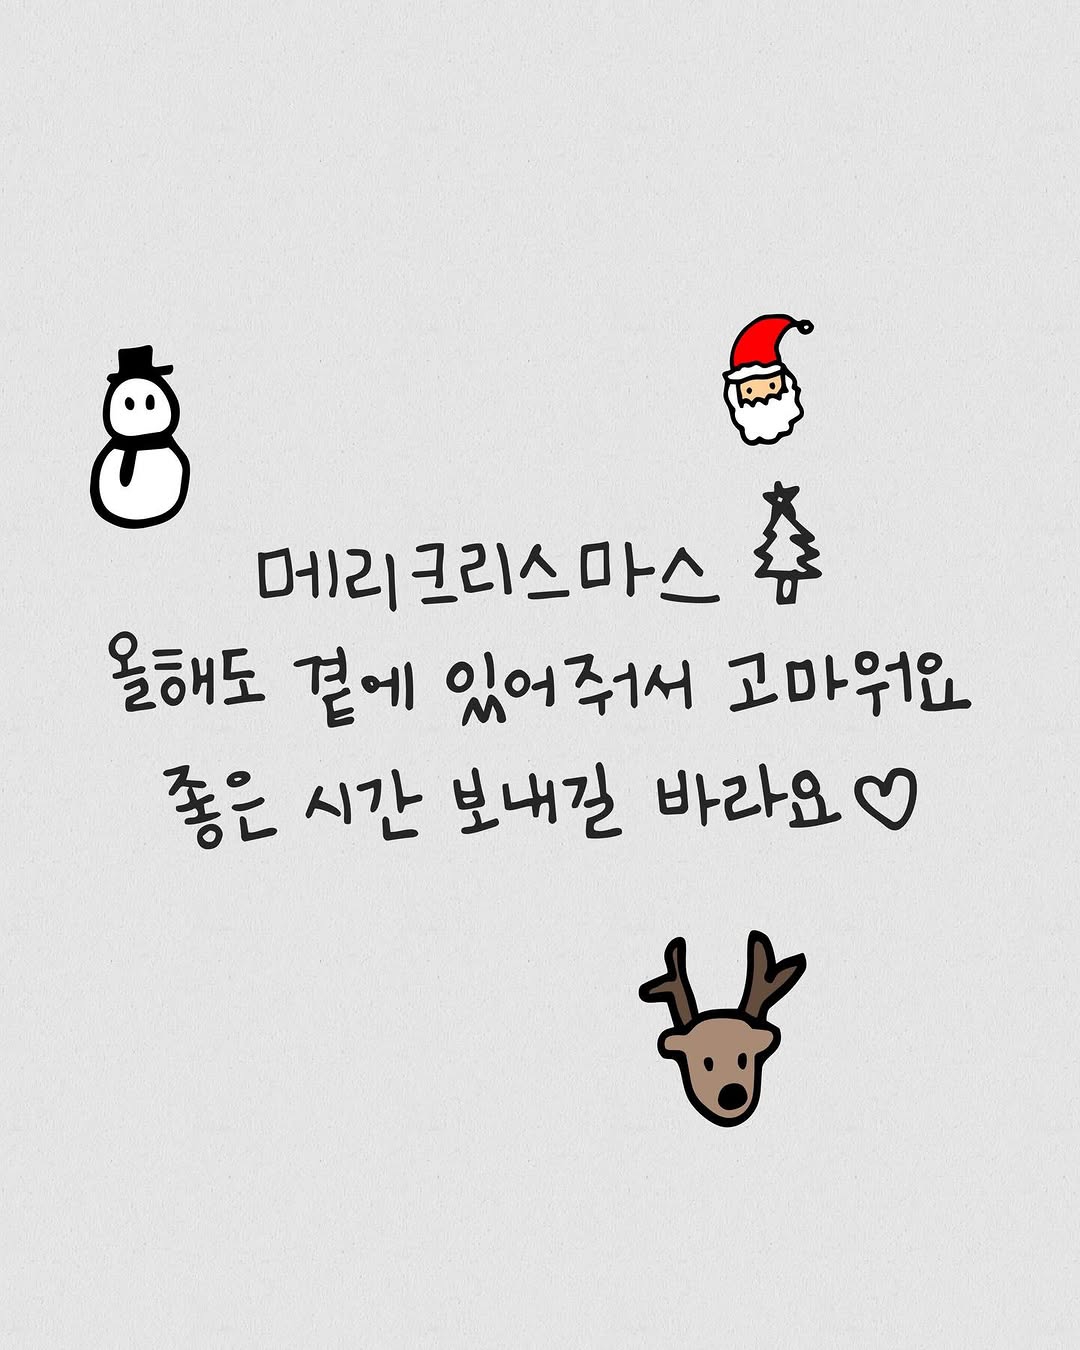 메리크리스마스
올해도 곁에 있어줘서 고마워요
좋은 시간 보내길 바라요♡